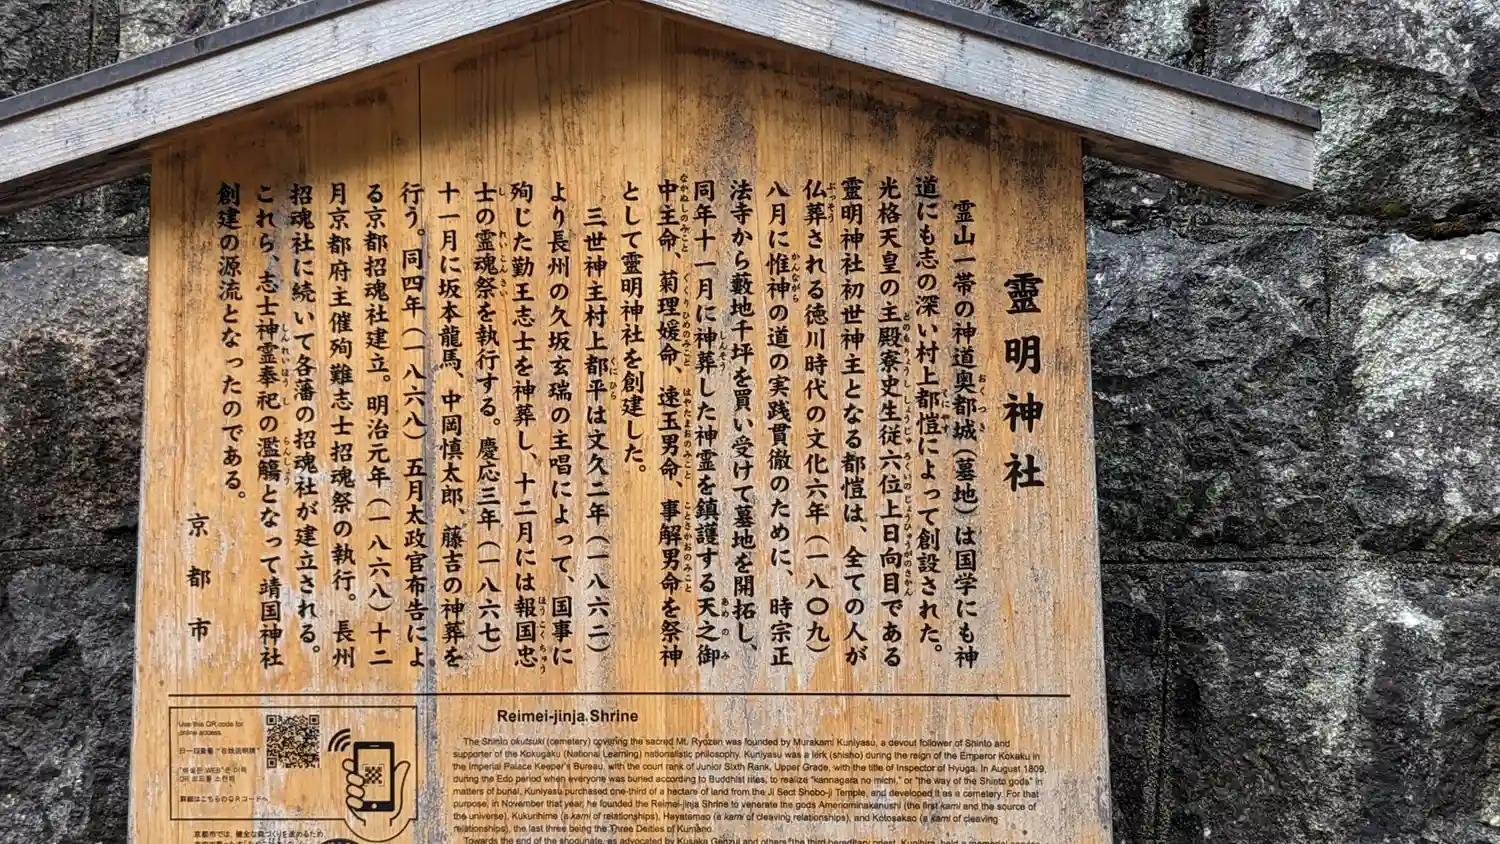 靈明神社
霊山一帯の神道奥都城（墓地）は国学にも神
道にも志の深い村上都愷によって創設された。
光格天皇の主殿寮史生従六位上日向目である
靈明神社初世神主となる都愷は、全ての人が
仏葬される徳川時代の文化六年（一八〇九）
八月に惟神の道の実践貫徹のために、時宗正
法寺から藪地千坪を買い受けて墓地を開拓し、
同年十一月に神葬した神霊を鎮護する天之御
中主命、菊理媛命、速玉男命、事解男命を祭神
として靈明神社を創建した。
三世神主村上都平は文久二年（一八六二）
より長州の久坂玄瑞の主唱によって、国事に
殉じた勤王志士を神葬し、十二月には報国忠
士の霊魂祭を執行する。慶応三年（一八六七）
十一月に坂本龍馬、中岡慎太郎、藤吉の神葬を
行う。同四年（一八六八）五月太政官布告によ
る京都招魂社建立。明治元年（一八六八）十二
月京都府主催殉難志士招魂祭の執行。長州
招魂社に続いて各藩の招魂社が建立される。
これら、志士神霊奉祀の濫觴となって靖国神社
創建の源流となったのである。
京都市
Use this QR code for
online access.
扫一扫查看"在线说明牌"
"해설판 WEB"은 이쪽
QR 코드로 접속
詳細はこちらのQRコードへ
京都市では、健全な森づくりを進めるため、
Reimei-jinja Shrine
The Shinto okutsuki (cemetery) covering the sacred Mt. Ryozen was founded by Murakami Kuniyasu, a devout follower of Shinto and
supporter of the Kokugaku (National Learning) nationalistic philosophy. Kuniyasu was a lerk (shisho) during the reign of the Emperor Kokaku in
the Imperial Palace Keeper's Bureau, with the court rank of Junior Sixth Rank, Upper Grade, with the title of Inspector of Hyuga. In August 1809,
during the Edo period when everyone was buried according to Buddhist rites, to realize "kannagara no michi," or "the way of the Shinto gods" in
matters of burial, Kuniyasu purchased one-third of a hectare of land from the Ji Sect Shobo-ji Temple, and developed it as a cemetery. For that
purpose, in November that year, he founded the Reimei-jinja Shrine to venerate the gods Amenominakanushi (the first kami and the source of
the universe), Kukurihime (a kami of relationships), Hayatamao (a kami of cleaving relationships), and Kotosakao (a kami of cleaving
relationships), the last three being the Three Deities of Kumano.
Towards the end of the shogunate, as advocated by Kusaka Genzui and others, the third hereditary priest, Kunihira, held a memorial service